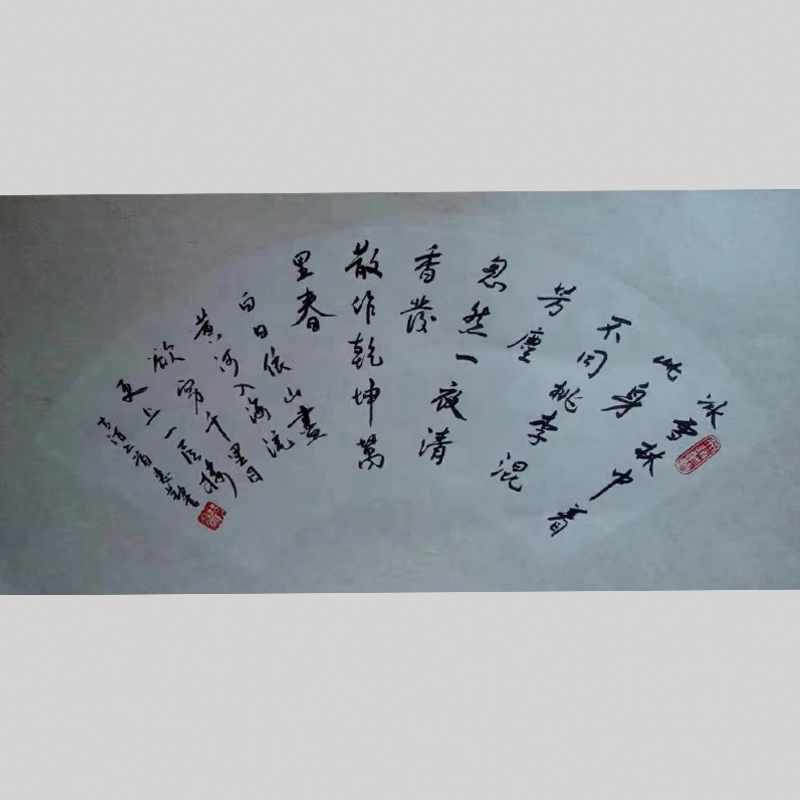 冰雪林中着
此身
不同桃李混
芳塵
忽然一夜清
香發
散作乾坤萬
里春
白日依山盡
黄河入海流
欲窮千里目
更上一层楼
古诗二首